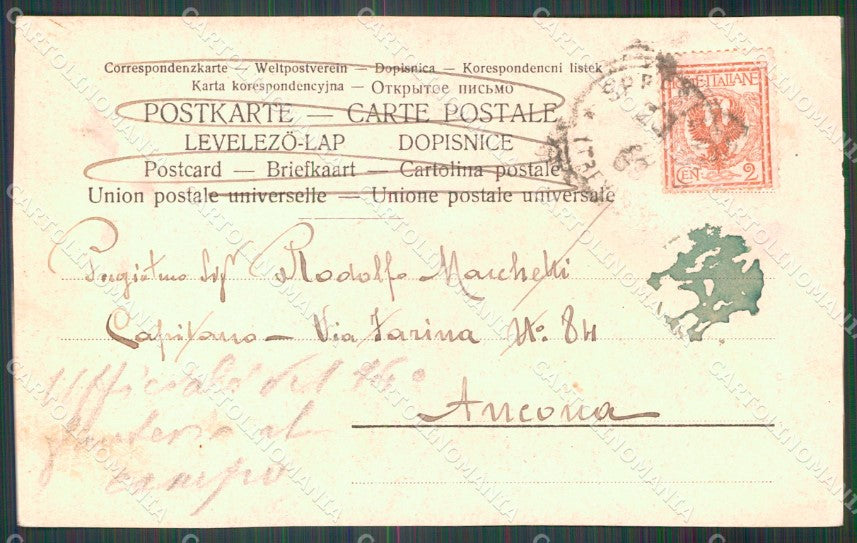 Correspondenzkarte — Weltpostverein — Dopisnica — Korespondencni listek
Karta korespondencyjna — Открытое письмо
POSTKARTE — CARTE POSTALE
LEVELEZÖ-LAP DOPISNICE
Postcard — Briefkaart — Cartolina postale
Union postale universelle — Unione postale universale
POSTE ITALIANE
CEN. 2
Pregiatmo Sigr Rodolfo Marchetti
Capitano — Via Farina No. 84
Ancona
Ufficiale del
al
campo
CARTOLINOMANIA